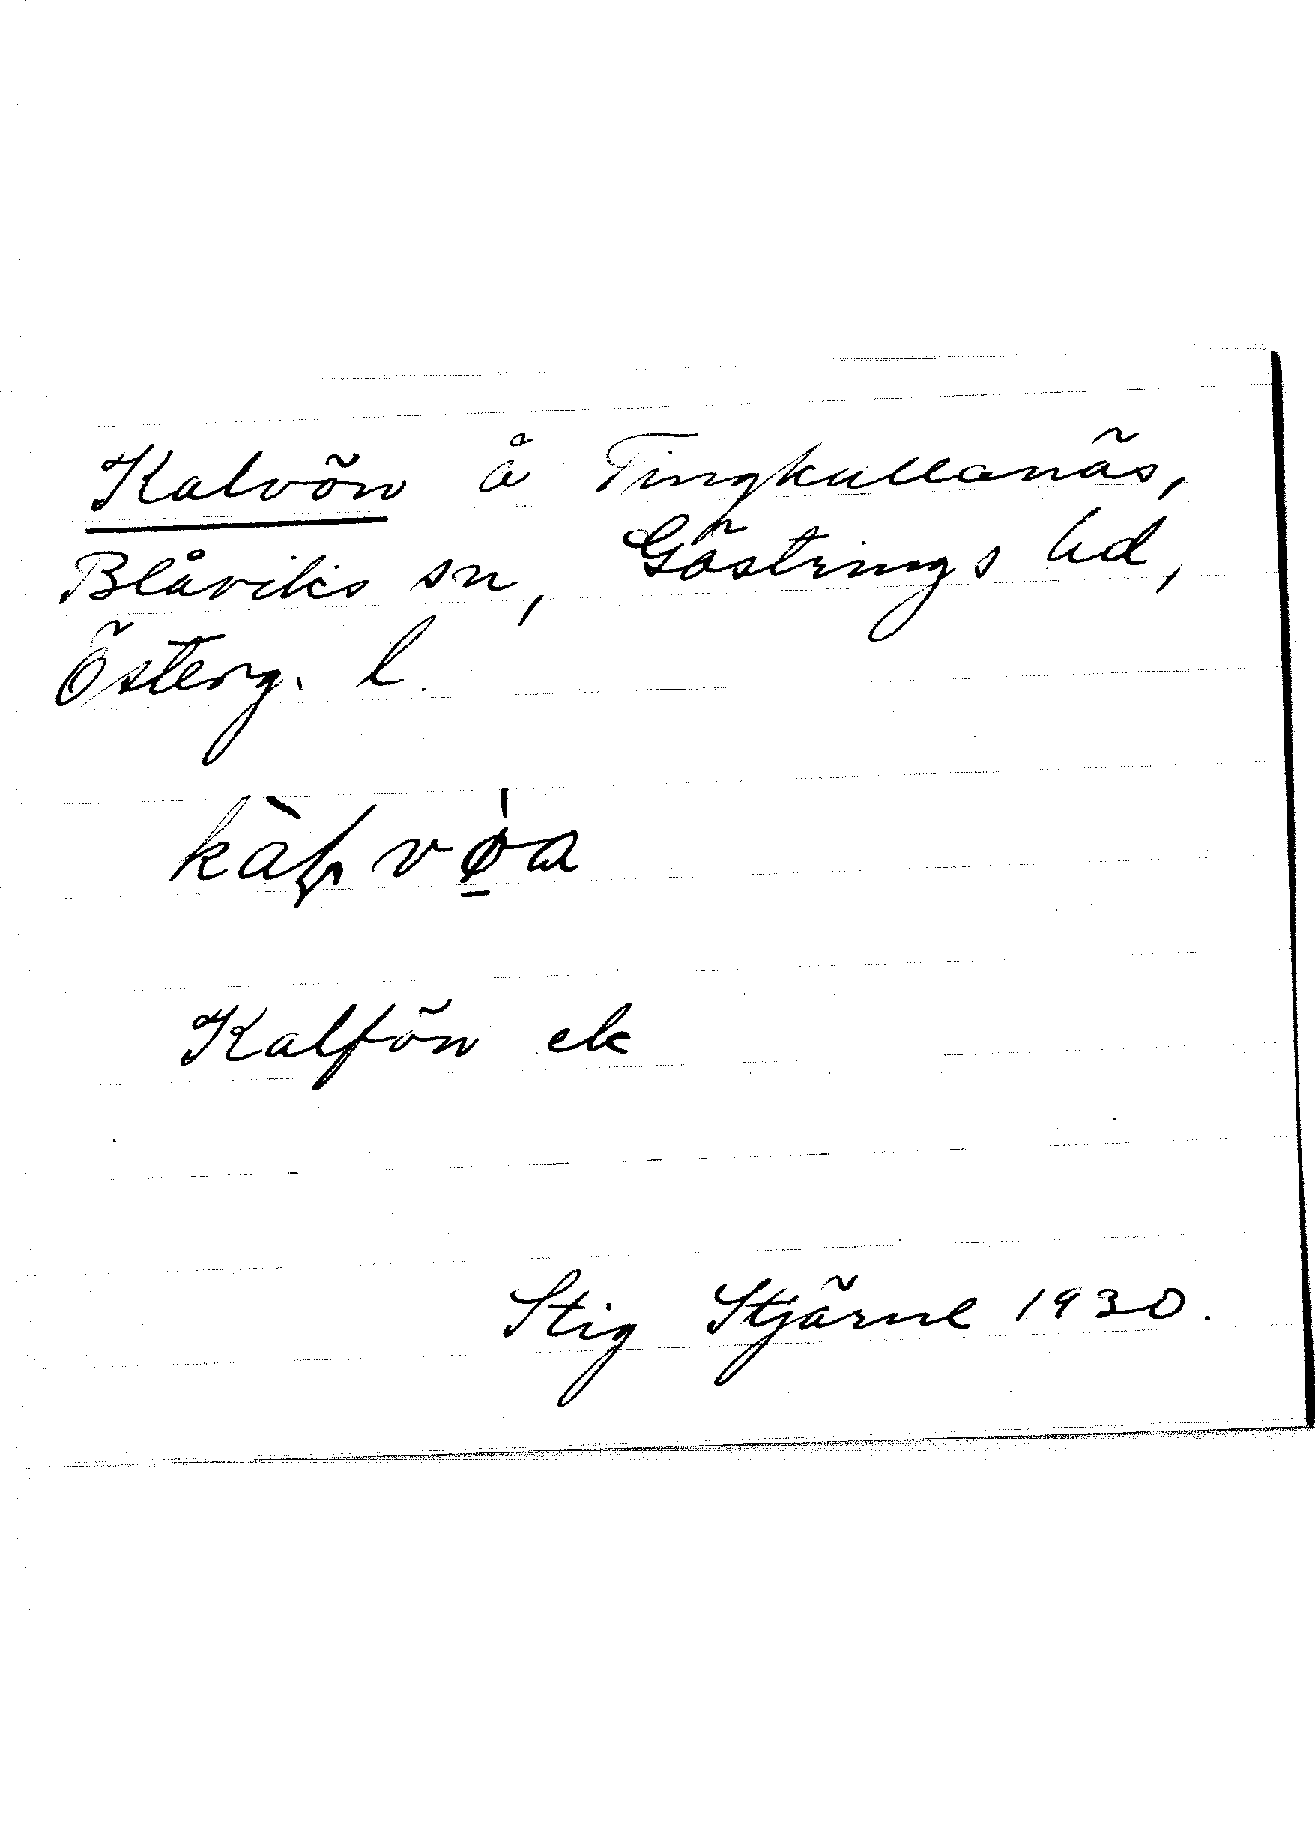 Kalvön å Tingkullanäs,
Blåviks sn, Göstrings hd,
Österg. l.
Kalfön ek
Stig Stjärne 1930.